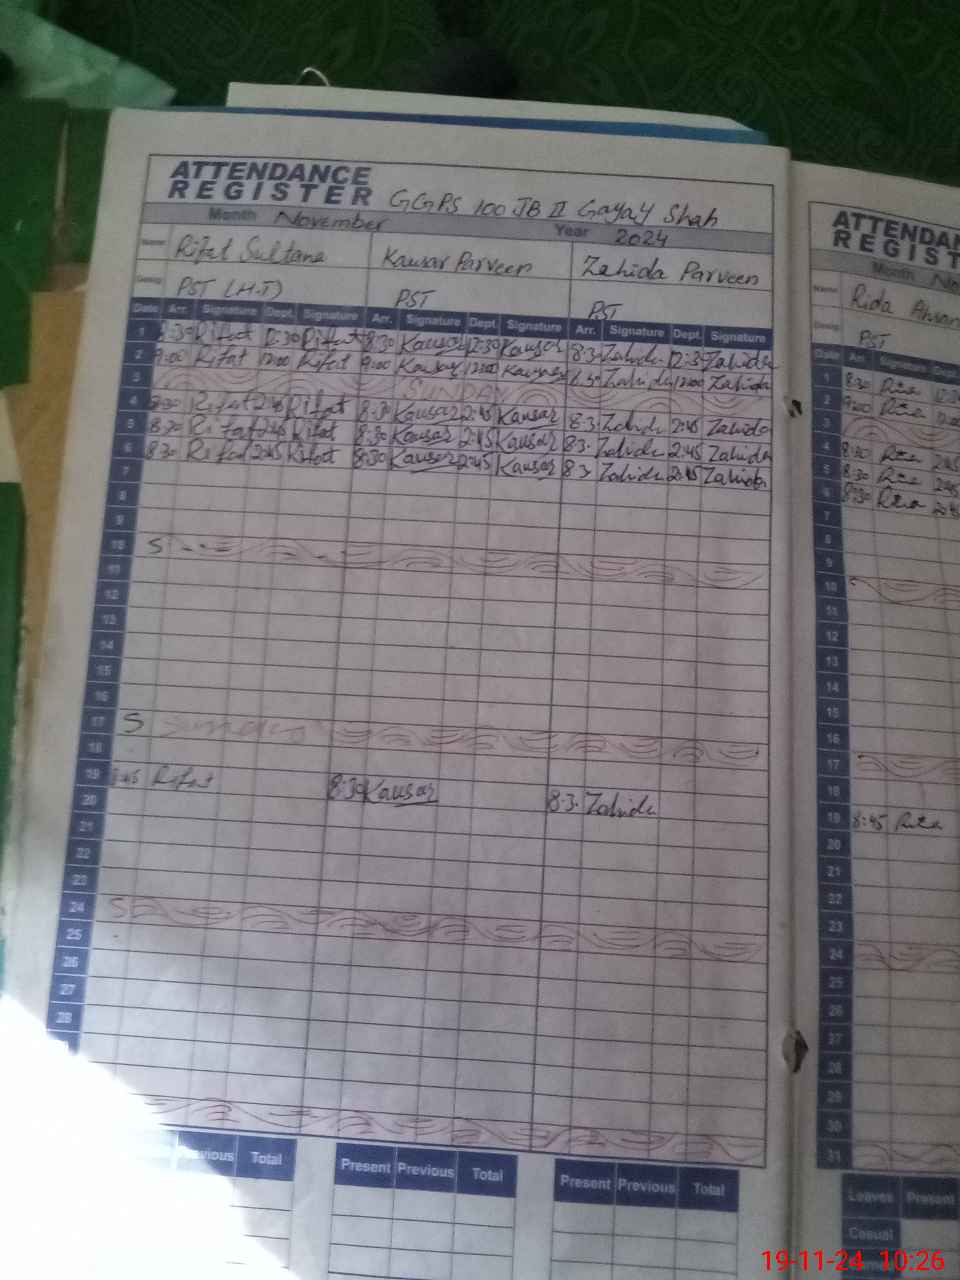 ATTENDANCE
REGISTER GGPS 100 JB II Gayay Shah
Month November Year 2024
Name Rifat Sultana Kausar Parveen Zahida Parveen
Desig PST (H.T) PST PST
Date Arr. Signature Dept. Signature Arr. Signature Dept. Signature Arr. Signature Dept. Signature
1 8:30 Rifat 12:30 Rifat 8:30 Kausar 12:30 Kausar 8:3 Zahida 12:3 Zahida
2 9:00 Rifat 12:00 Rifat 9:00 Kausar 12:00 Kausar Zahida 12:00 Zahida
3 SUNDAY
4 8:30 Rifat 2:45 Rifat 8:30 Kausar 2:45 Kausar 8:3 Zahida 2:45 Zahida
5 8:30 Rifat 2:45 Rifat 8:30 Kausar 2:45 Kausar 8:3 Zahida 2:45 Zahida
6 8:30 Rifat 2:45 Rifat 8:30 Kausar 2:45 Kausar 8:3 Zahida 2:45 Zahida
7
8
9
10 S
11
12
13
14
15
16
17 S Sunday
18
19 8:45 Rifat 8:30 Kausar 8:3 Zahida
20
21
22
23
24 S
25
26
27
28
Previous Total Present Previous Total Present Previous Total
ATTENDAN
REGIST
Month
Name Rida Ahsan
Desig PST
Date Arr. Signature Dept
1 8:30
2 9:00
3
4 8:30
5 8:30
6 8:30
7
8
9
10
11
12
13
14
15
16
17
18
19 8:45
20
21
22
23
24
25
26
27
28
29
30
31
Leaves Present
Casual
19-11-24 10:26